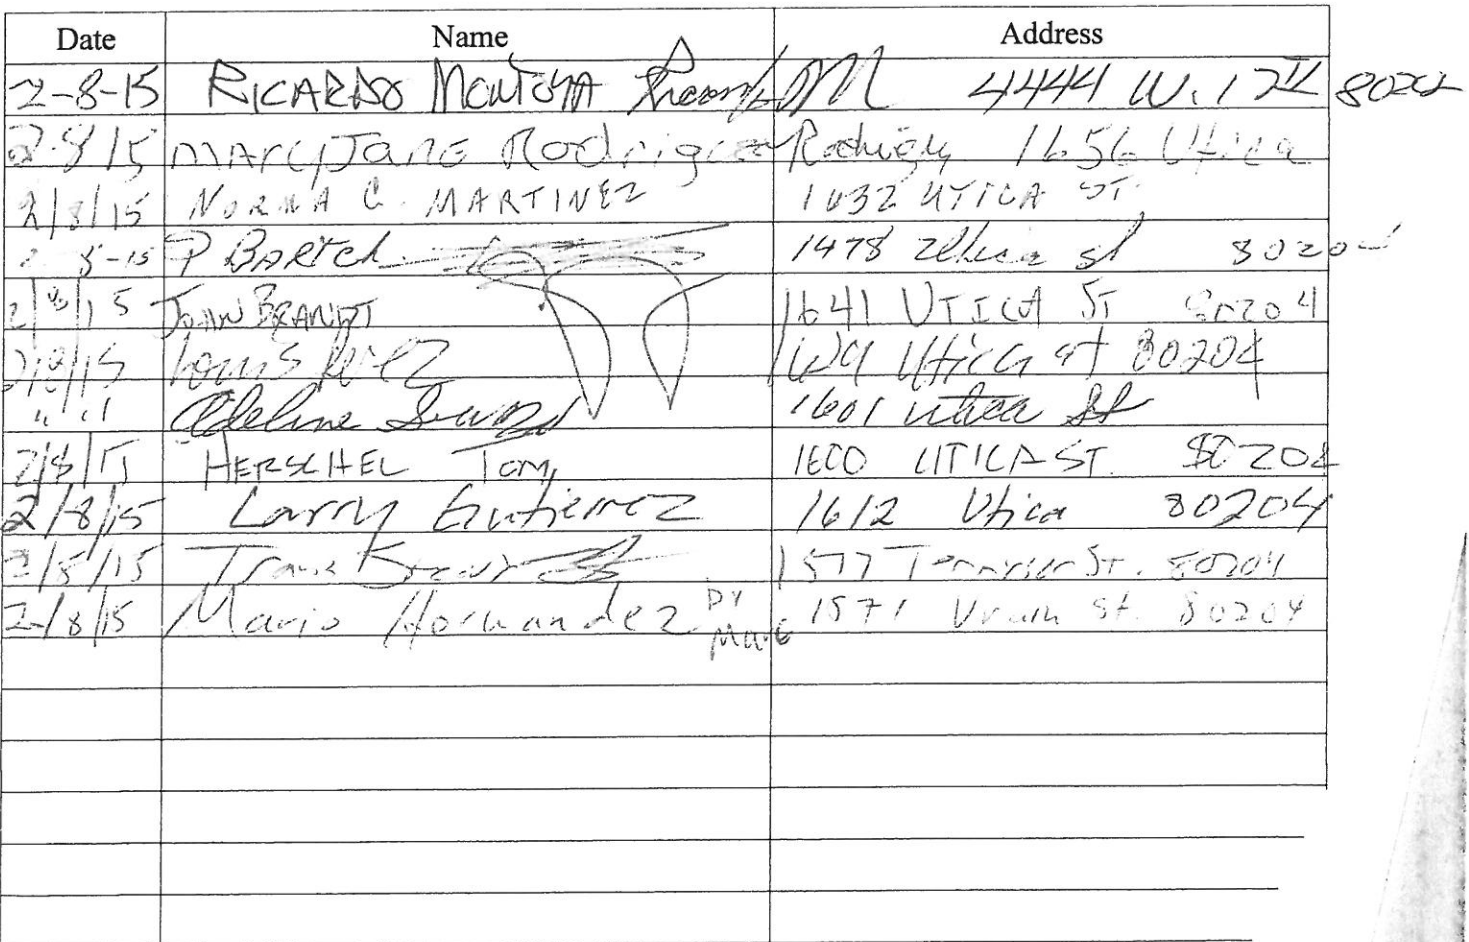 Date Name Address
2-8-15 RICARDO MONTOYA 4444 W. 17th 80204
2-8/15 MARYJANE Rodriguez 1656 Utica
2/8/15 NORMA C. MARTINEZ 1632 UTICA ST.
8-15 P BARTCH 1478 st 80204
2/8/15 JOHN BRANDT 1641 UTICA ST 80204
2/8/15 Louis Utica st 80204
" " Adeline 1601 Utica St
2/8/15 HERSCHEL TOM 1600 UTICA ST. 80204
2/8/15 Larry Gutierrez 1612 Utica 80204
2/8/15 Travis 1577 St. 80204
2/8/15 Mario Hernandez 1571 St. 80204